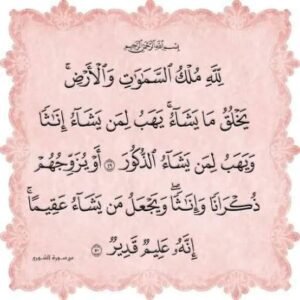 بِسْمِ اللَّهِ الرَّحْمَٰنِ الرَّحِيمِ
لِلَّهِ مُلْكُ السَّمَٰوَٰتِ وَالْأَرْضِ ۚ
يَخْلُقُ مَا يَشَاءُ ۚ يَهَبُ لِمَن يَشَاءُ إِنَٰثًا
وَيَهَبُ لِمَن يَشَاءُ الذُّكُورَ ۝٤٩ أَوْ يُزَوِّجُهُمْ
ذُكْرَانًا وَإِنَٰثًا ۖ وَيَجْعَلُ مَن يَشَاءُ عَقِيمًا ۚ
إِنَّهُ عَلِيمٌ قَدِيرٌ ۝٥٠
من سورة الشورى